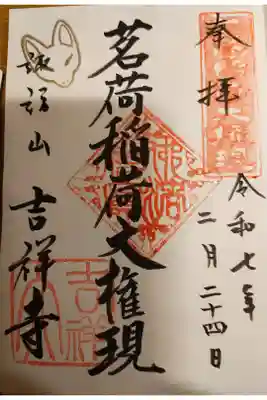 奉拝
令和七年二月二十四日
茗荷稲荷大権現
諏訪山 吉祥寺